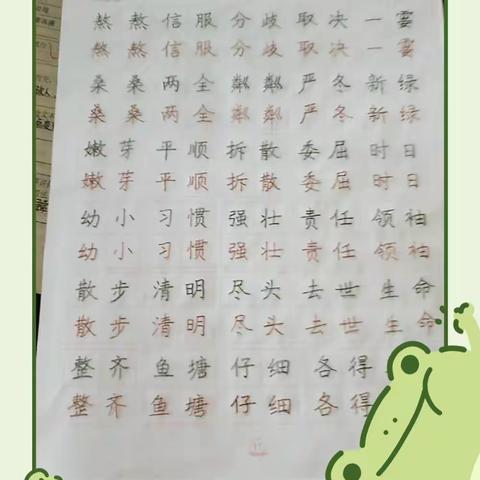 熬 熬 信 服 分 歧 取 决 一 霎
熬 熬 信 服 分 歧 取 决 一 霎
桑 桑 两 全 粼 粼 严 冬 新 绿
桑 桑 两 全 粼 粼 严 冬 新 绿
嫩 芽 平 顺 拆 散 委 屈 时 日
嫩 芽 平 顺 拆 散 委 屈 时 日
幼 小 习 惯 强 壮 责 任 领 袖
幼 小 习 惯 强 壮 责 任 领 袖
散 步 清 明 尽 头 去 世 生 命
散 步 清 明 尽 头 去 世 生 命
整 齐 鱼 塘 仔 细 各 得
整 齐 鱼 塘 仔 细 各 得